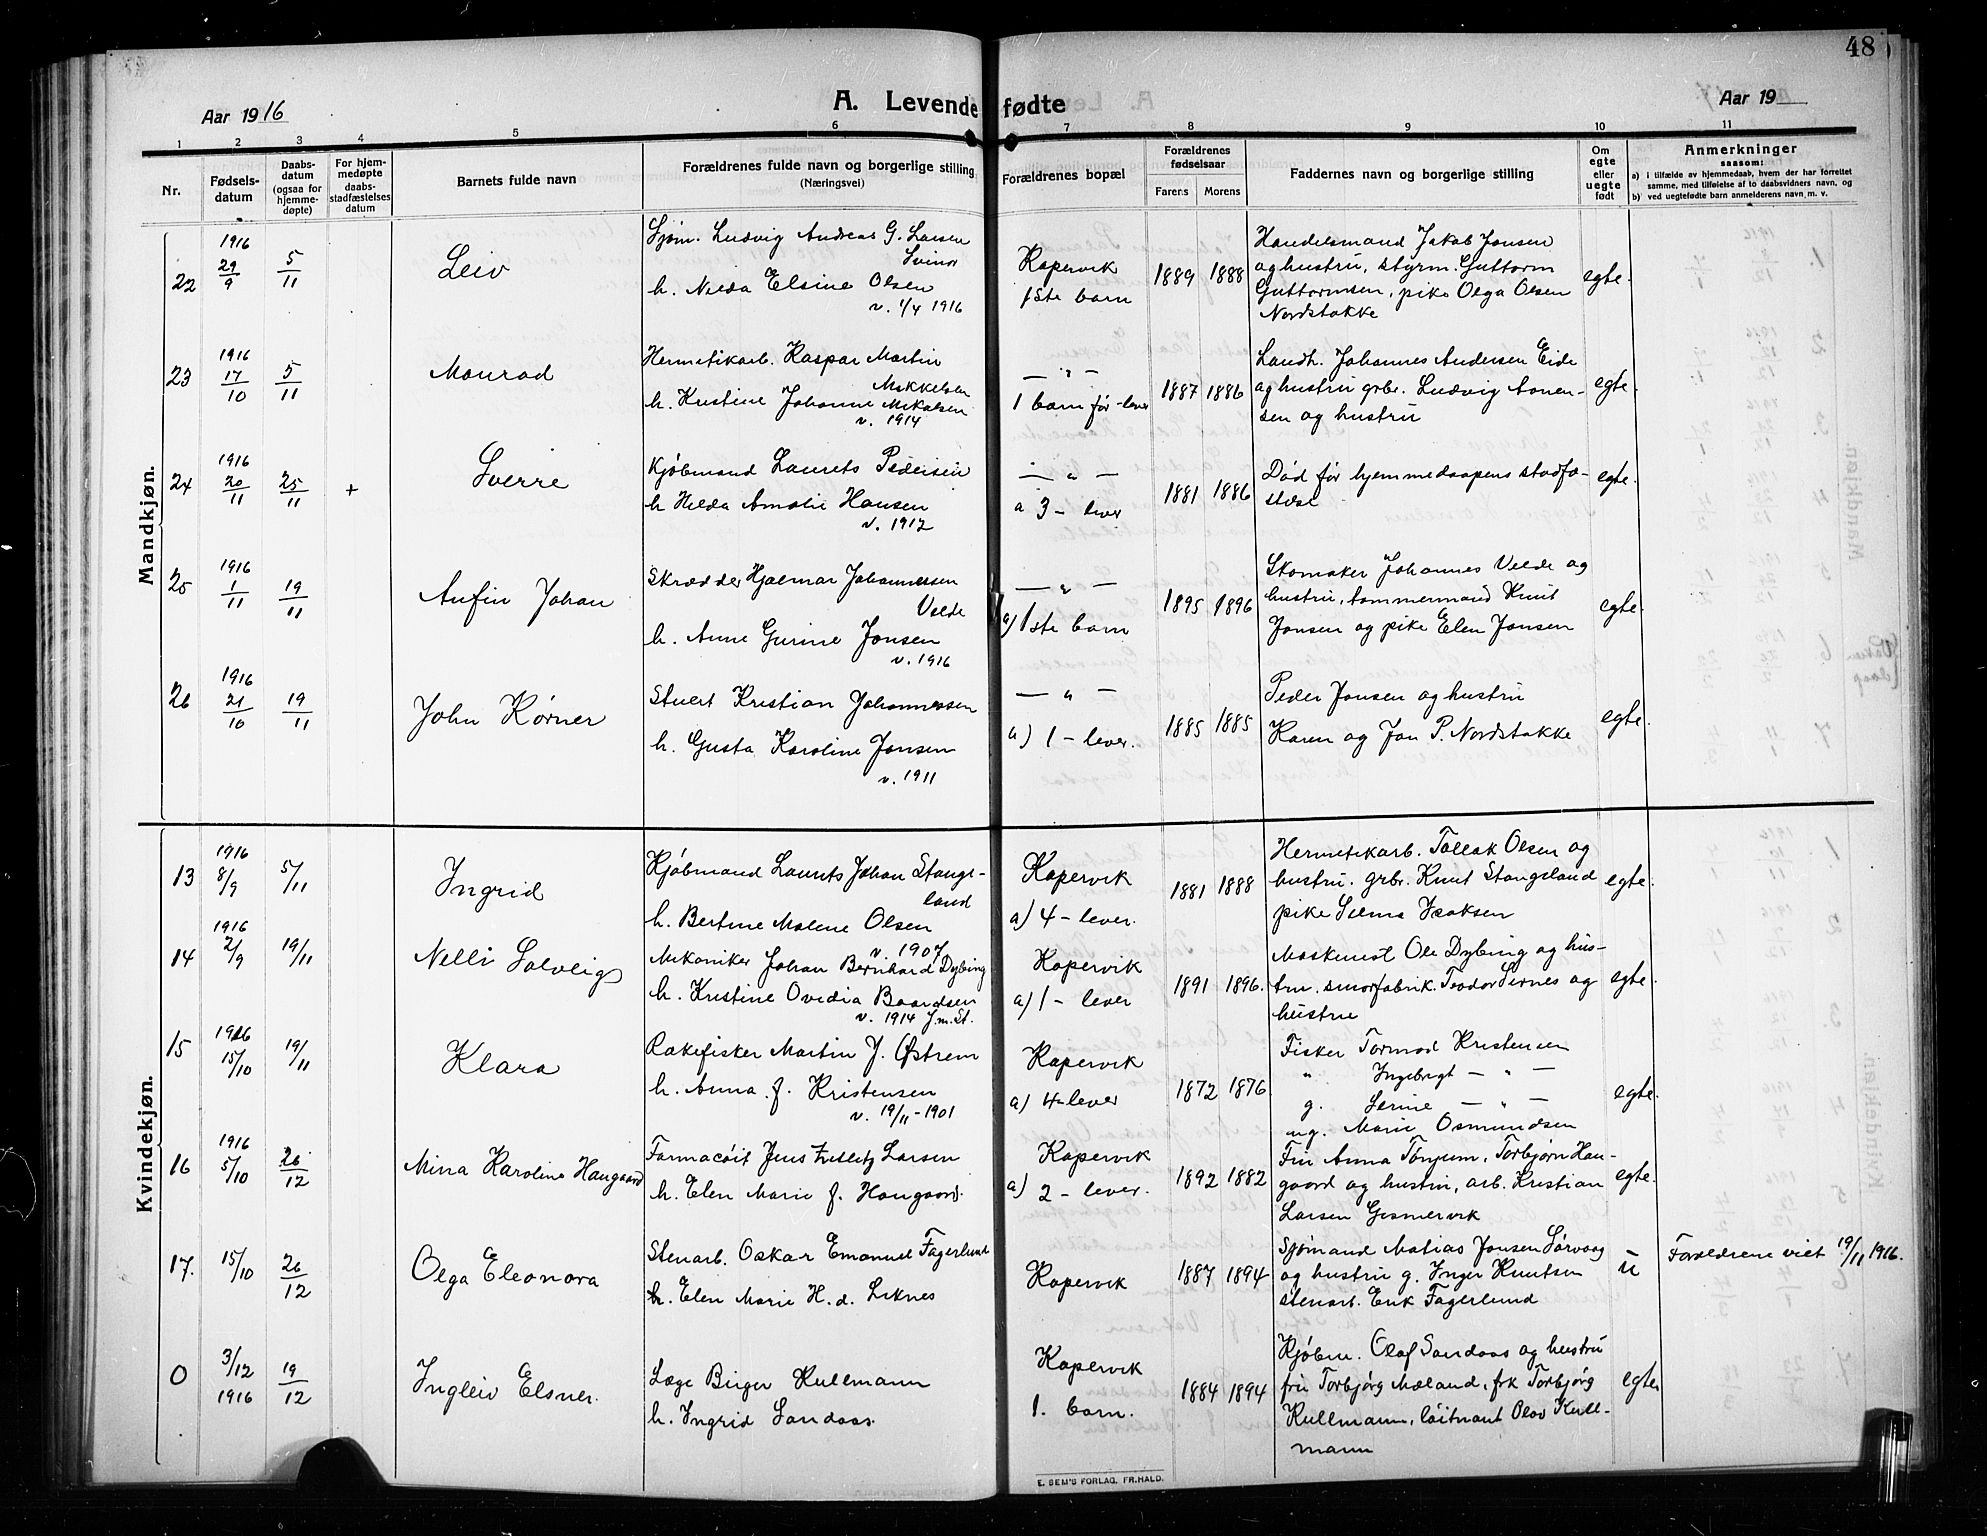 48
Aar 1916
A. Levende fødte
Aar 19
1 2 3 4 5 6 7 8 9 10 11
Nr.
Fødsels-
datum
Daabs-
datum
(ogsaa for
hjemme-
døpte)
For hjem-
medøpte
daabs-
stadfæstelses
datum
Barnets fulde navn
Forældrenes fulde navn og borgerlige stilling
(Næringsvei)
Forældrenes bopæl
Forældrenes
fødselsaar
Farens Morens
Faddernes navn og borgerlige stilling
Om
egte
eller
uegte
født
Anmerkninger
saasom:
a) i tilfælde av hjemmedaab, hvem der har forrettet
samme, med tilføielse af to daabsvidners navn, og
b) ved uegtefødte barn anmelderens navn m. v.
Mandkjøn.
22
1916
29/9
5/11
Leiv
Sjøm. Ludvig Andreas G. Larsen
h. Nilda Elsine Olsen
v. 1/4 1916
Kopervik
1ste barn
1889 1888
Handelsmand Jakob Jonsen
og hustru, styrm. Guttorm
Guttormsen, pike Olga Olsen
Nordstokke
egte.
23
1916
17/10
5/11
Monrad
Hermetikarb. Kaspar Martin
Mikkelsen
h. Kristine Johanne Mikalsen
v. 1914
— " —
1 barn før - lever
1887 1886
Landh. Johannes Andersen Eide
og hustru grbr. Ludvig Aanen-
sen og hustru
egte.
24
1916
20/11
25/11
+
Sverre
Kjøbmand Laurits Pedersen
h Hilda Amalie Hansen
v. 1912
— " —
a 3 - lever
1881 1886
Død før hjemmedaapens stadfæ-
stelse
egte.
25
1916
1/11
19/11
Anfin Johan
Skrædder Hjalmar Johannessen
Velde
h. Anne Gurine Jonsen
v. 1916
— " —
a) 1ste barn
1895 1896
Skomaker Johannes Velde og
hustru, tømmermand Knut
Jonsen og pike Elen Jonsen
egte.
26
1916
21/10
19/11
John Kørner
Stuert Kristian Johannessen
h. Gusta Karoline Jonsen
v. 1911
— " —
a) 1 - lever.
1885 1885
Peder Jonsen og hustru
Karen og Jon P. Nordstokke
egte.
Kvindekjøn.
13
1916
8/9
5/11
Ingrid
Kjøbmand Laurits Johan Stange-
land
h. Bertine Malene Olsen
v. 1907
Kopervik
a) 4 - lever.
1881 1888
Hermetikarb. Tollak Olsen og
hustru. grbr. Knut Stangeland
pike Selma Isaksen
egte.
14
1916
2/9
19/11
Nelli Solveig
Mekaniker Johan Bernhard Dybing
h. Kristine Ovedia Baardsen
v. 1914 J.m.St.
Kopervik
a) 1 - lever
1891 1896.
Maskenist Ole Dybing og hus-
tru. smørfabrik. Teodor Sirnes og
hustru
egte.
15
1916
15/10
19/11
Klara
Rækefisker Martin J. Østrem
h. Anna f. Kristensen
v. 19/11 - 1901
Kopervik
a) 4 - lever
1872 1876
Fisker Tormod Kristensen
" Ingebrigt — " —
g. Serine — " —
ug. Marie Osmundsen
egte.
16
1916
5/10
26/12
Mina Karoline Haugaard
Farmacøit Jens Larsen
h. Elen Marie f. Haugaard.
Kopervik
a) 2 - lever.
1892 1882
Fru Anna Tønjum, Torbjørn Hau-
gaard og hustru, arb. Kristian
Larsen Gismervik
egte.
17.
15/10
26/12
Olga Eleonora
Stenarb. Oskar Emanuel Fagerlund
h. Elen Marie H. d. Liknes
Kopervik
1887 1894
Sjømand Matias Jonsen Sørvaag
og hustru g. Inger Knutsen
stenarb. Erik Fagerlund
u
Forældrene viet 19/11 1916.
0
3/12
1916
19/12
Ingleiv Elsner.
Læge Birger Kullmann
h. Ingrid Sandaas.
Kopervik
1. barn.
1884 1894
Kjøbm. Olaf Sandaas og hustru
fru Torbjørg Mæland, frk Torbjørg
Kullmann, løitnant Olav Kull-
mann
egte
E. SEM'S FORLAG, FR.HALD.